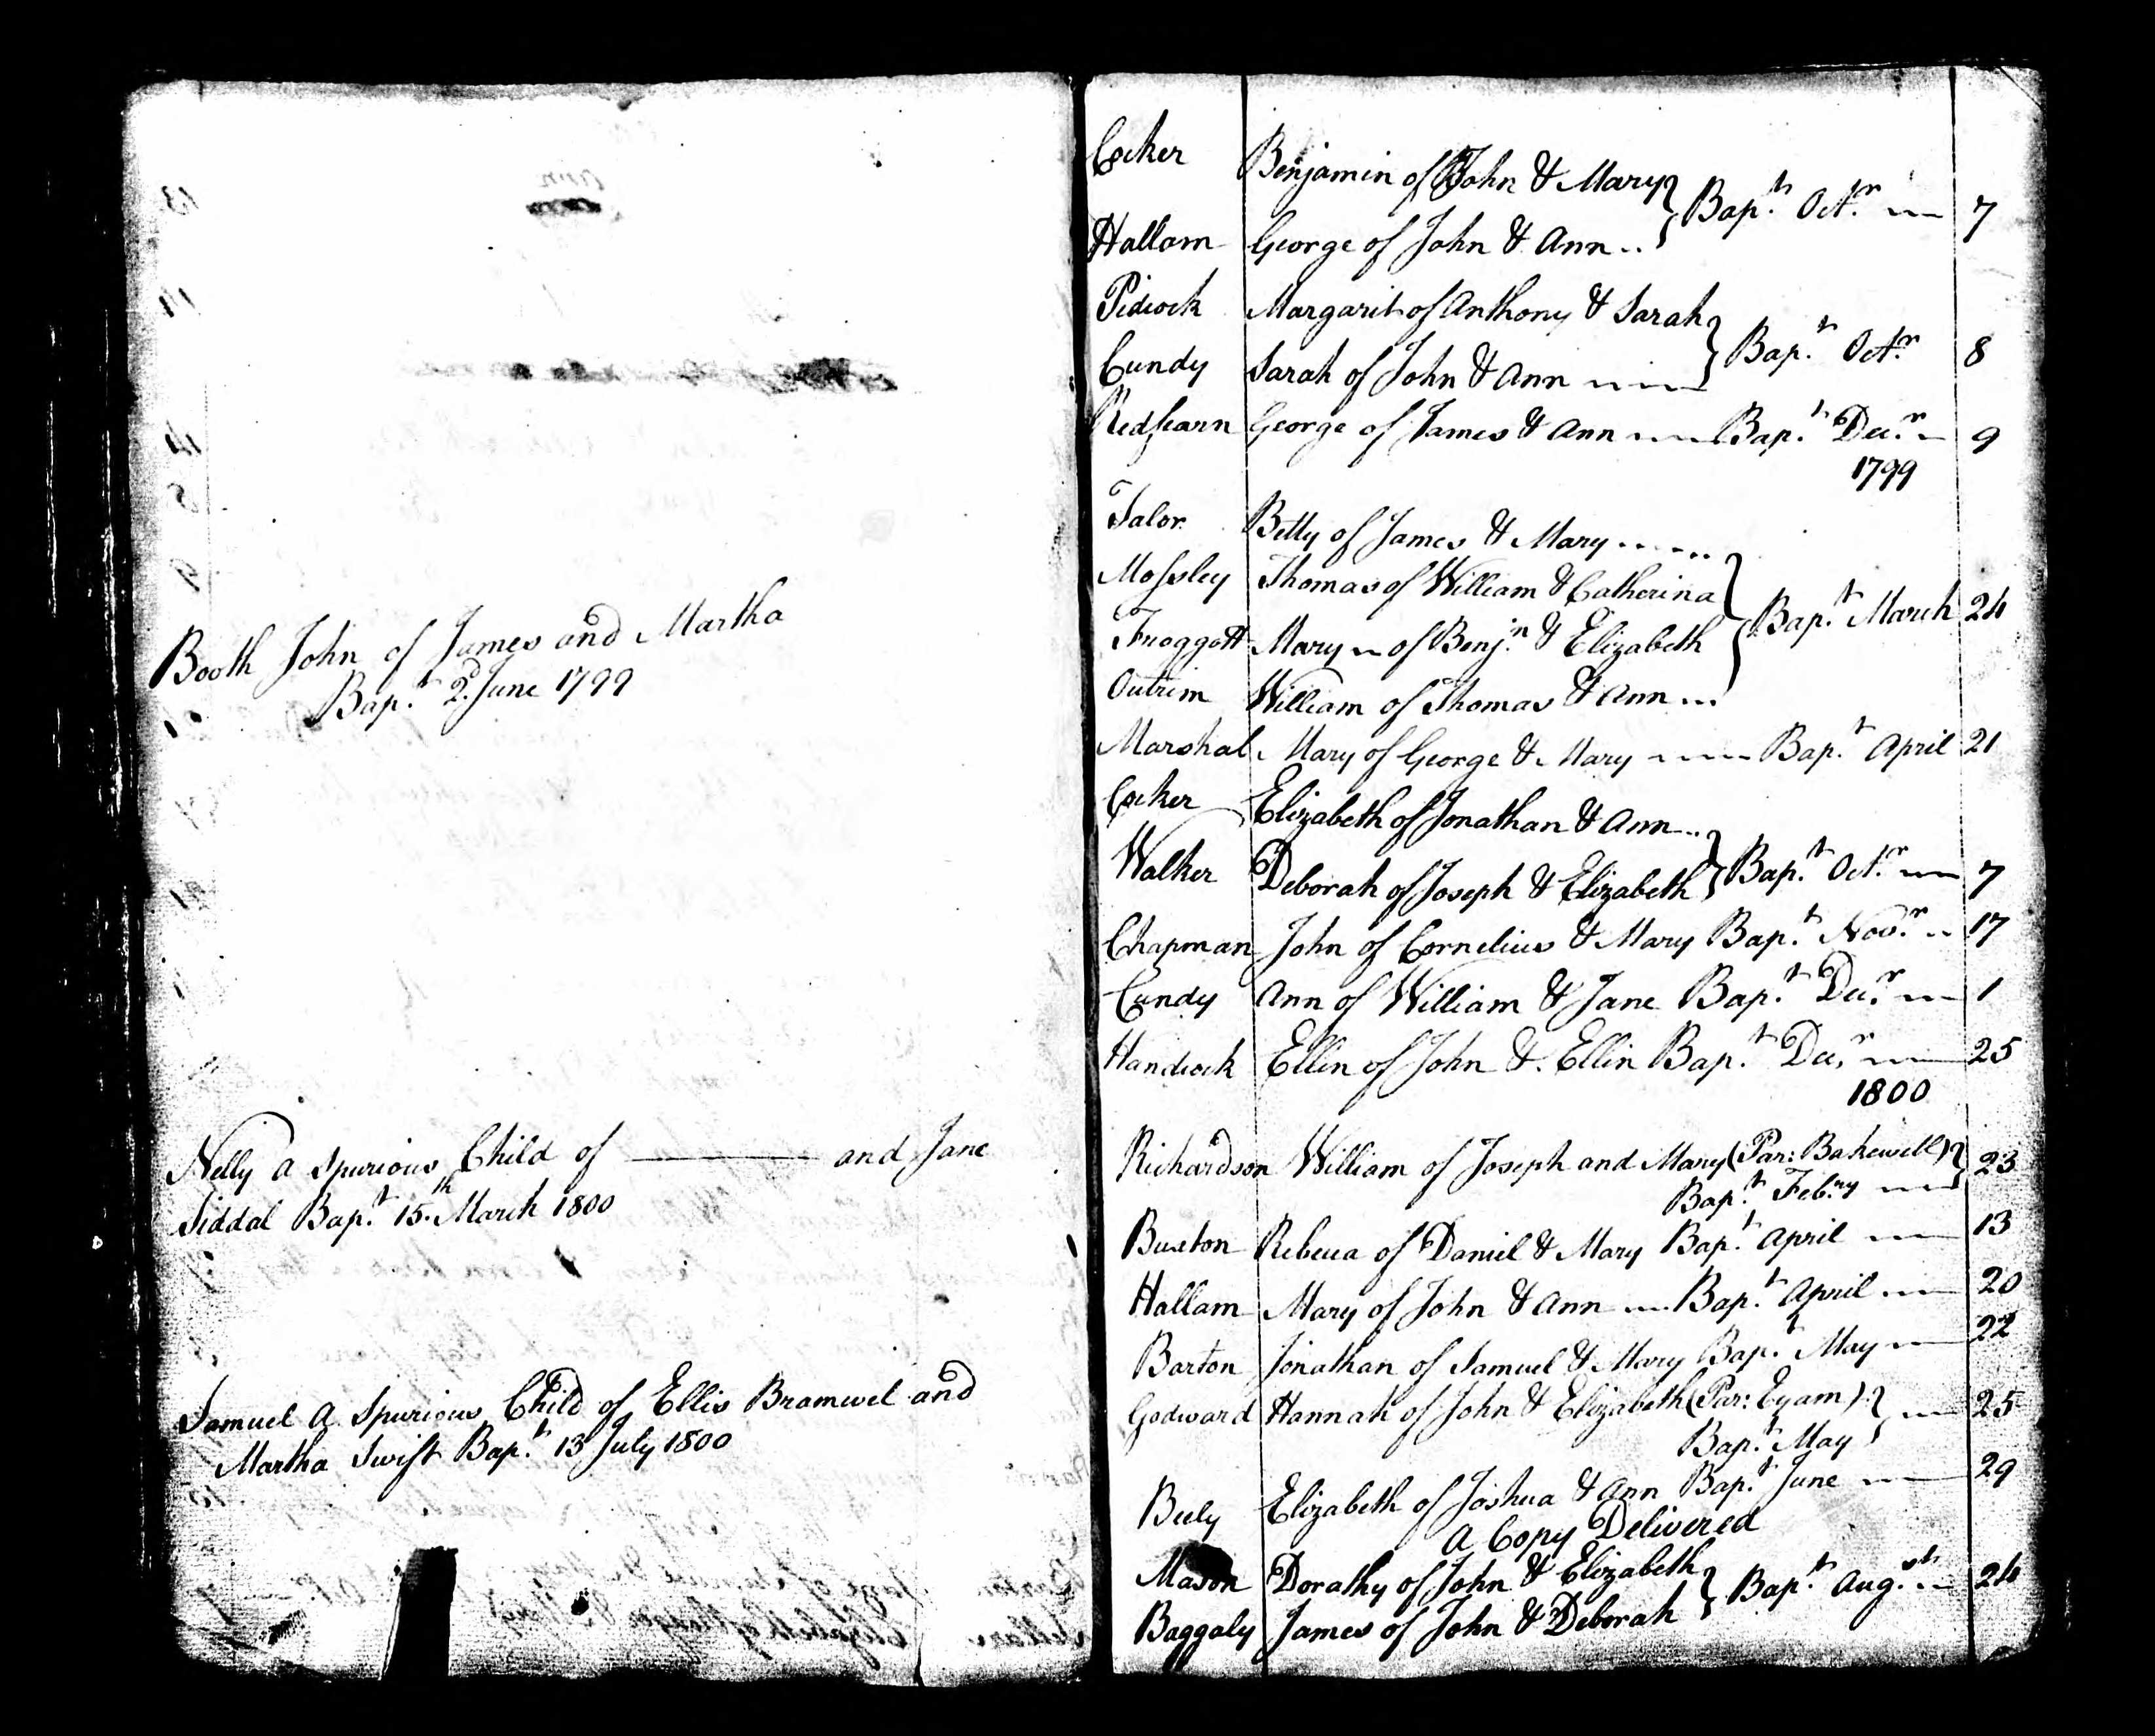 Booth John of James and Martha
Bap.t 2.d June 1799
Nelly a spurious Child of ——— and Jane
Siddal Bap.t 15.th March 1800
Samuel a spurious Child of Ellis Bramwel and
Martha Swift Bap.t 13 July 1800
Cocker Benjamin of John & Mary
Bap.t Oct.r 7
Hallam George of John & Ann
Pidcock Margarit of Anthony & Sarah
Bap.t Oct.r 8
Cundy Sarah of John & Ann
Redfearn George of James & Ann Bap.t Dec.r 9
1799
Talor Betty of James & Mary
Mossley Thomas of William & Catherina
Bap.t March 24
Froggott Mary of Benj.n & Elizabeth
Outrim William of Thomas & Ann
Marshal Mary of George & Mary Bap.t April 21
Cocker Elizabeth of Jonathan & Ann
Walker Deborah of Joseph & Elizabeth Bap.t Oct.r 7
Chapman John of Cornelius & Mary Bap.t Nov.r 17
Cundy Ann of William & Jane Bap.t Dec.r 1
Handcock Ellin of John & Ellin Bap.t Dec.r 25
1800
Richardson William of Joseph and Mary (Par: Bakewell) 23
Bap.t Feb.ry
Buxton Rebecca of Daniel & Mary Bap.t April 13
Hallam Mary of John & Ann Bap.t April 20
Barton Jonathan of Samuel & Mary Bap.t May 22
Godward Hannah of John & Elizabeth (Par: Eyam) 25
Bap.t May
Beely Elizabeth of Joshua & Ann Bap.t June 29
A Copy Delivered
Mason Dorathy of John & Elizabeth
Bap.t Aug.st 24
Baggaly James of John & Deborah